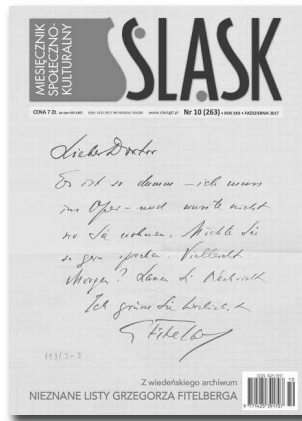 MIESIĘCZNIK
SPOŁECZNO-
KULTURALNY
ŚLĄSK
CENA 7 ZŁ
www.slaskgtl.pl
Nr 10 (263) • ROK XXII • PAŹDZIERNIK 2017
Lieber Doktor
Es ist so dumm – ich muss
ins Oper – und wusste nicht
wo Sie wohnen. Möchte Sie
so gern sprechen. Vielleicht
Morgen? Nachricht
Ich grüsse Sie herzlichst
GFitelberg
113/3-3
Z wiedeńskiego archiwum
NIEZNANE LISTY GRZEGORZA FITELBERGA